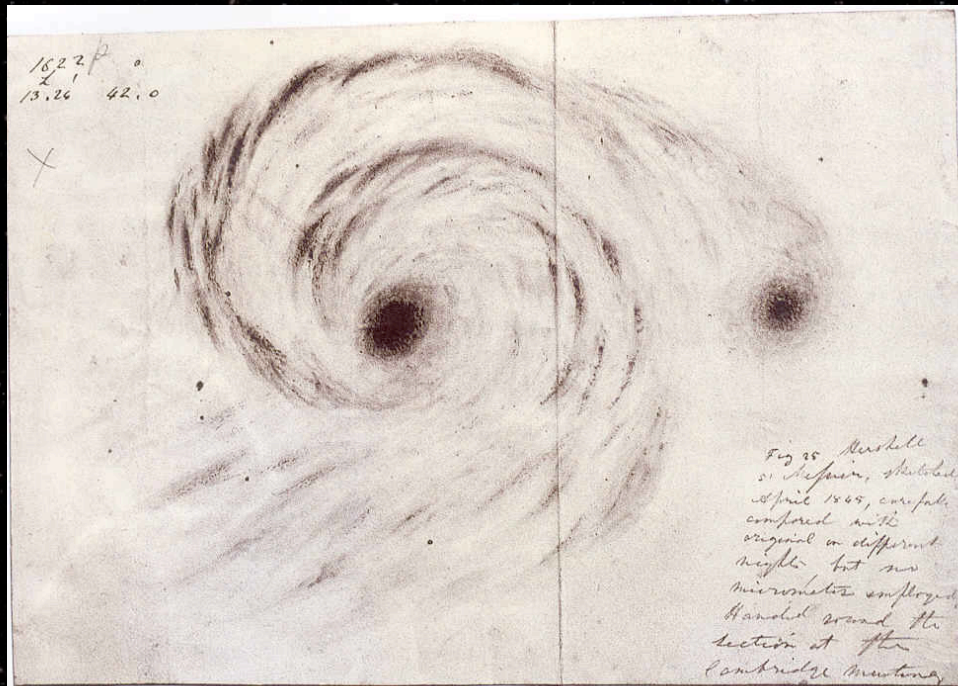 1622
13.26 42.0
Fig 25 Herschell
51 Messier, sketched
April 1845, carefully
compared with
original on different
nights but no
micrometer employed
Handed round the
section at the
Cambridge meeting